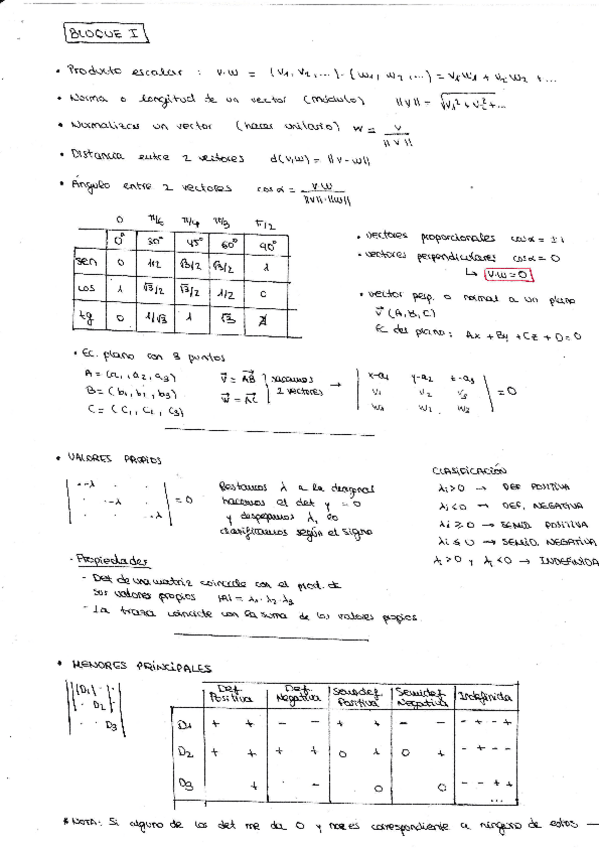 BLOQUE I
• Producto escalar : v·w = (v1, v2, ...)·(w1, w2, ...) = v1w1 + v2w2 + ...
• Norma o longitud de un vector (módulo) ||v|| = √v1² + v2² + ...
• Normalizar un vector (hacer unitario) w = v / ||v||
• Distancia entre 2 vectores d(v,w) = ||v - w||
• Ángulo entre 2 vectores cos α = v·w / ||v||·||w||
0 π/6 π/4 π/3 π/2
0° 30° 45° 60° 90°
sen 0 1/2 √3/2 √3/2 1
cos 1 √3/2 √3/2 1/2 0
tg 0 1/√3 1 √3 ∄
• vectores proporcionales cos α = ±1
• vectores perpendiculares cos α = 0
↳ v·w = 0
• vector perp. o normal a un plano
v⃗ (A, B, C)
Ec del plano: Ax + By + Cz + D = 0
• Ec. plano con 3 puntos
A = (a1, a2, a3)
B = (b1, b1, b3)
C = (c1, c2, c3)
v⃗ = AB⃗
w⃗ = AC⃗
sacamos
2 vectores
→
x-a1 y-a2 z-a3
v1 v2 v3
w1 w2 w3
= 0
• VALORES PROPIOS
·-λ · ·
· ·-λ ·
· · ·-λ
= 0
Restamos λ a la diagonal
hacemos el det y = 0
y despejamos λ, lo
clasificamos según el signo
CLASIFICACIÓN
λi > 0 → DEF POSITIVA
λi < 0 → DEF. NEGATIVA
λi ≥ 0 → SEMID. POSITIVA
λi ≤ 0 → SEMID. NEGATIVA
λi > 0 y λi < 0 → INDEFINIDA
- Propiedades
- Det de una matriz coincide con el prod. de
sus valores propios |A| = λ1·λ2·λ3
- La traza coincide con la suma de los valores propios.
• MENORES PRINCIPALES
D1 · ·
· D2 ·
· · D3
Def Positiva Def. Negativa Semidef Positiva Semidef Negativa Indefinida
D1 + + - - + + - - - + - +
D2 + + + + 0 + 0 + - + - -
D3 + · - 0 0 - - + +
...
* NOTA: Si alguno de los det me da 0 y no es correspondiente a ninguno de estos —